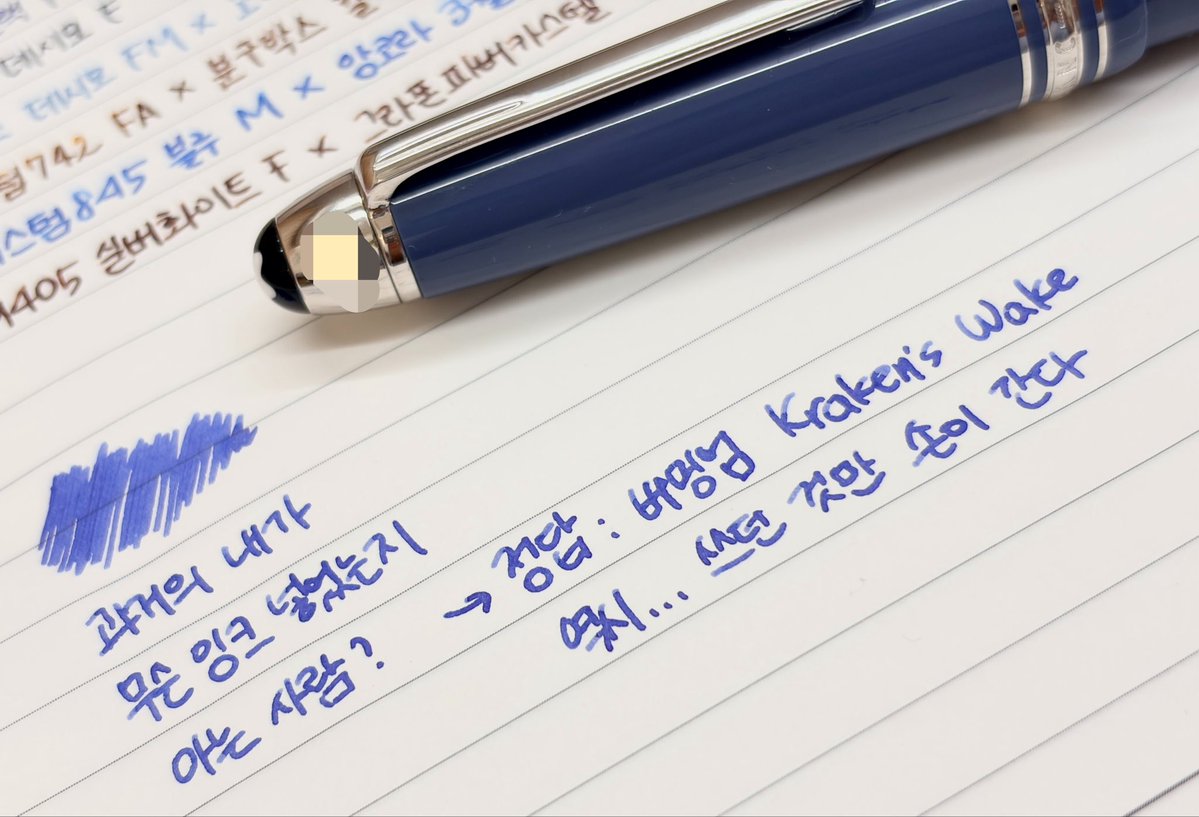 데시모 F
데시모 FM ×
742 FA × 분구박스
스텀845 블루 M × 앙코라 3월
405 실버화이트 F × 그라폰파버카스텔
과거의 내가
무슨 잉크 넣었는지
아는 사람?
→ 정답 : 버밍엄 Kraken's Wake
역시... 쓰던 것만 손이 간다